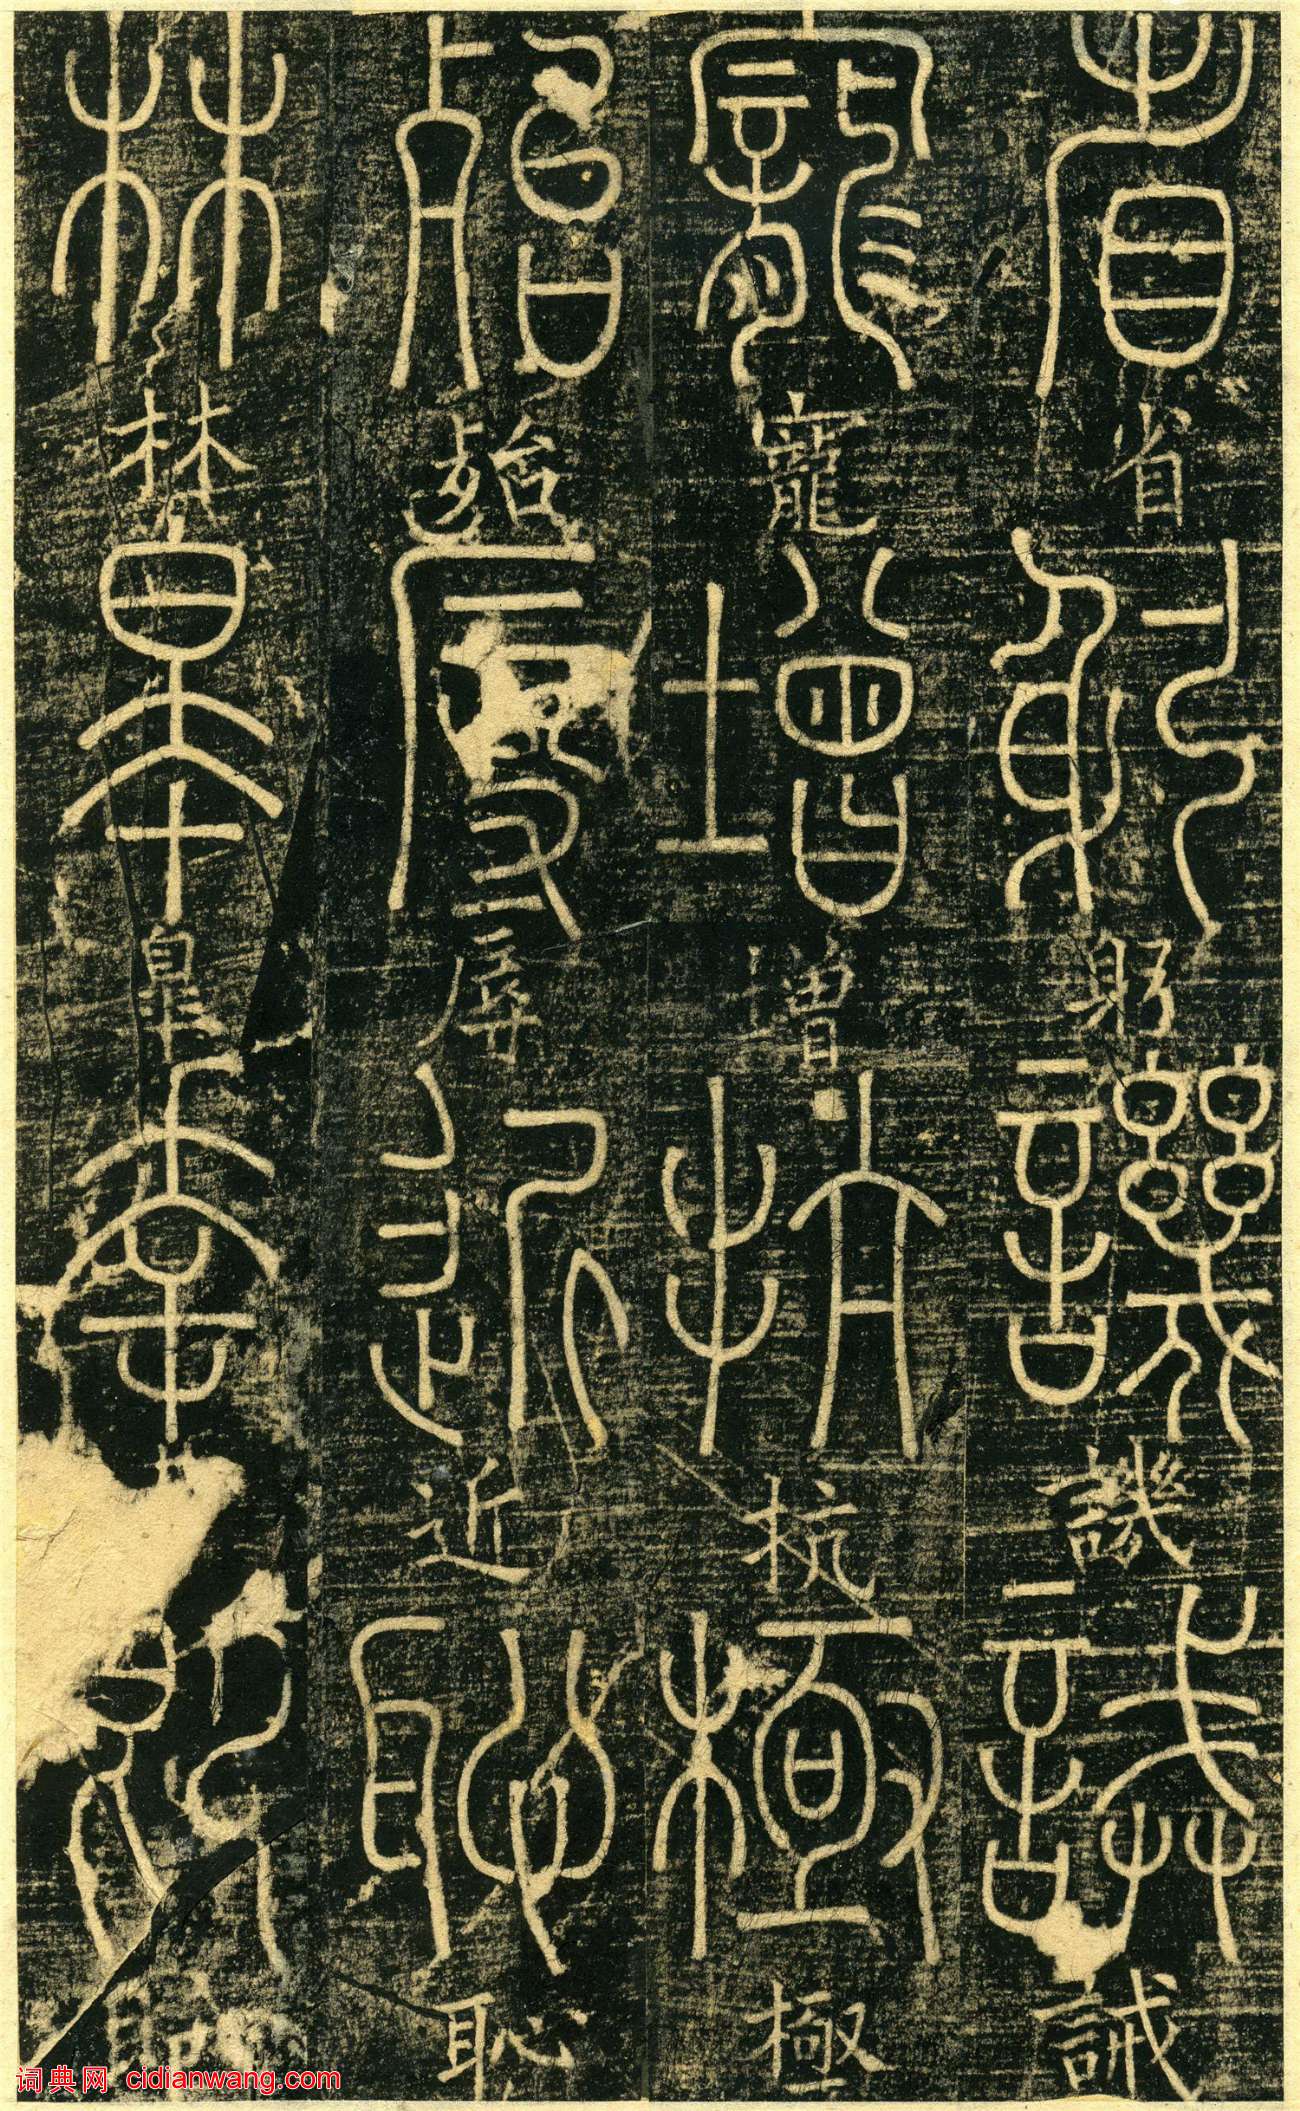 省躬譏誡
寵增杭極
殆辱近恥
林皋幸即
词典网 cidianwang.com